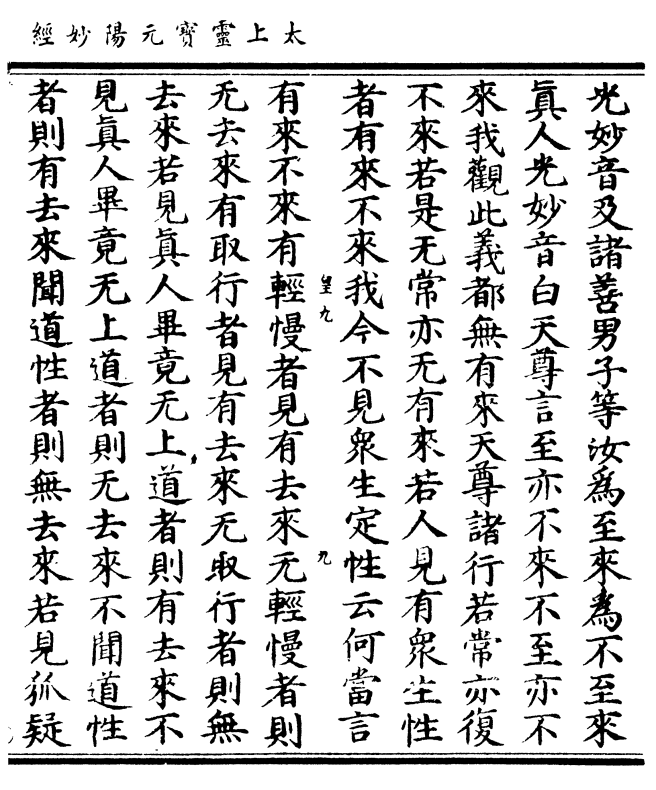 太上靈寳元陽妙經
光妙音及諸善男子等汝爲至來爲不至來
眞人光妙音白天尊言至亦不來不至亦不
來我觀此義都無有來天尊諸行若常亦復
不來若是无常亦无有來若人見有衆生性
者有來不來我今不見衆生定性云何當言
皇九
九
有來不來有輕慢者見有去來无輕慢者則
无去來有取行者見有去來无取行者則無
去來若見眞人畢竟无上道者則有去來不
見眞人畢竟无上道者則无去來不聞道性
者則有去來聞道性者則無去來若見狐疑